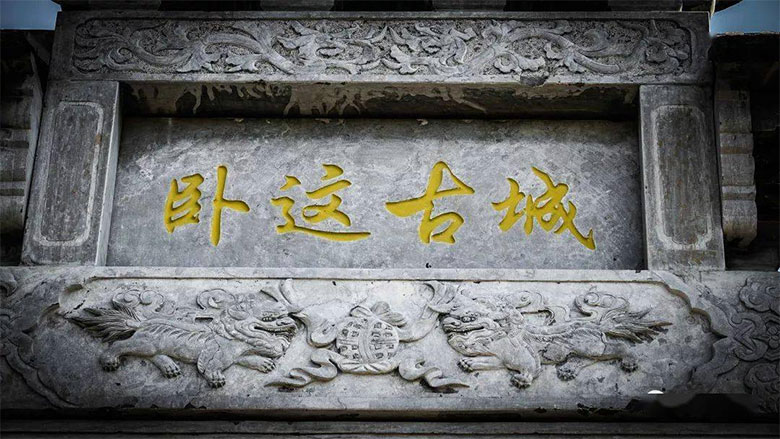 卧这古城